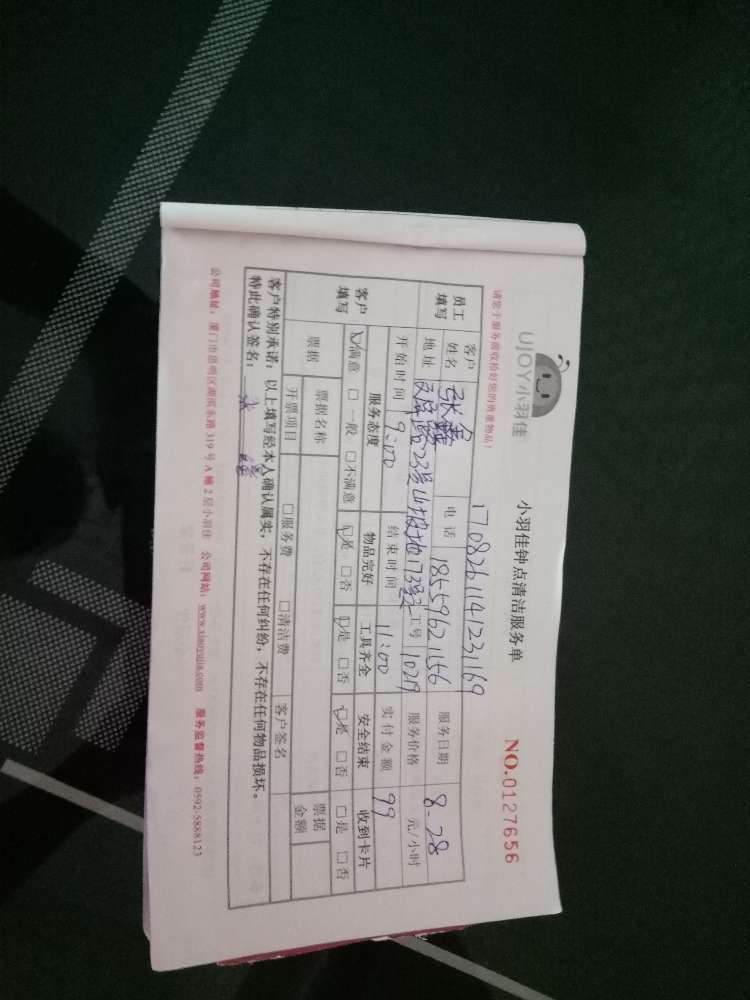 UJOY小羽佳
小羽佳钟点清洁服务单
NO.0127656
请您于服务前收拾好您的贵重物品！
170826114123169
员工填写
客户姓名 张鑫 电话 18559621156 服务日期 8-28
地址 23号 173 工号 10219 服务价格 元/小时
开始时间 9:00 结束时间 11:00 实付金额 99
客户填写
服务态度 物品完好 工具齐全 安全结束 收到卡片
☑满意 □一般 □不满意 ☑是 □否 ☑是 □否 ☑是 □否 □是 □否
票据 票据名称 票据金额
开票项目 □服务费 □清洁费 客户签名
客户特别承诺：以上填写经本人确认属实，不存在任何纠纷，不存在任何物品损坏。
特此确认签名：
公司地址：厦门市思明区湖滨东路319号A幢2层小羽佳 公司网站：www.xiaoyujia.com 服务监督热线：0592-5888123